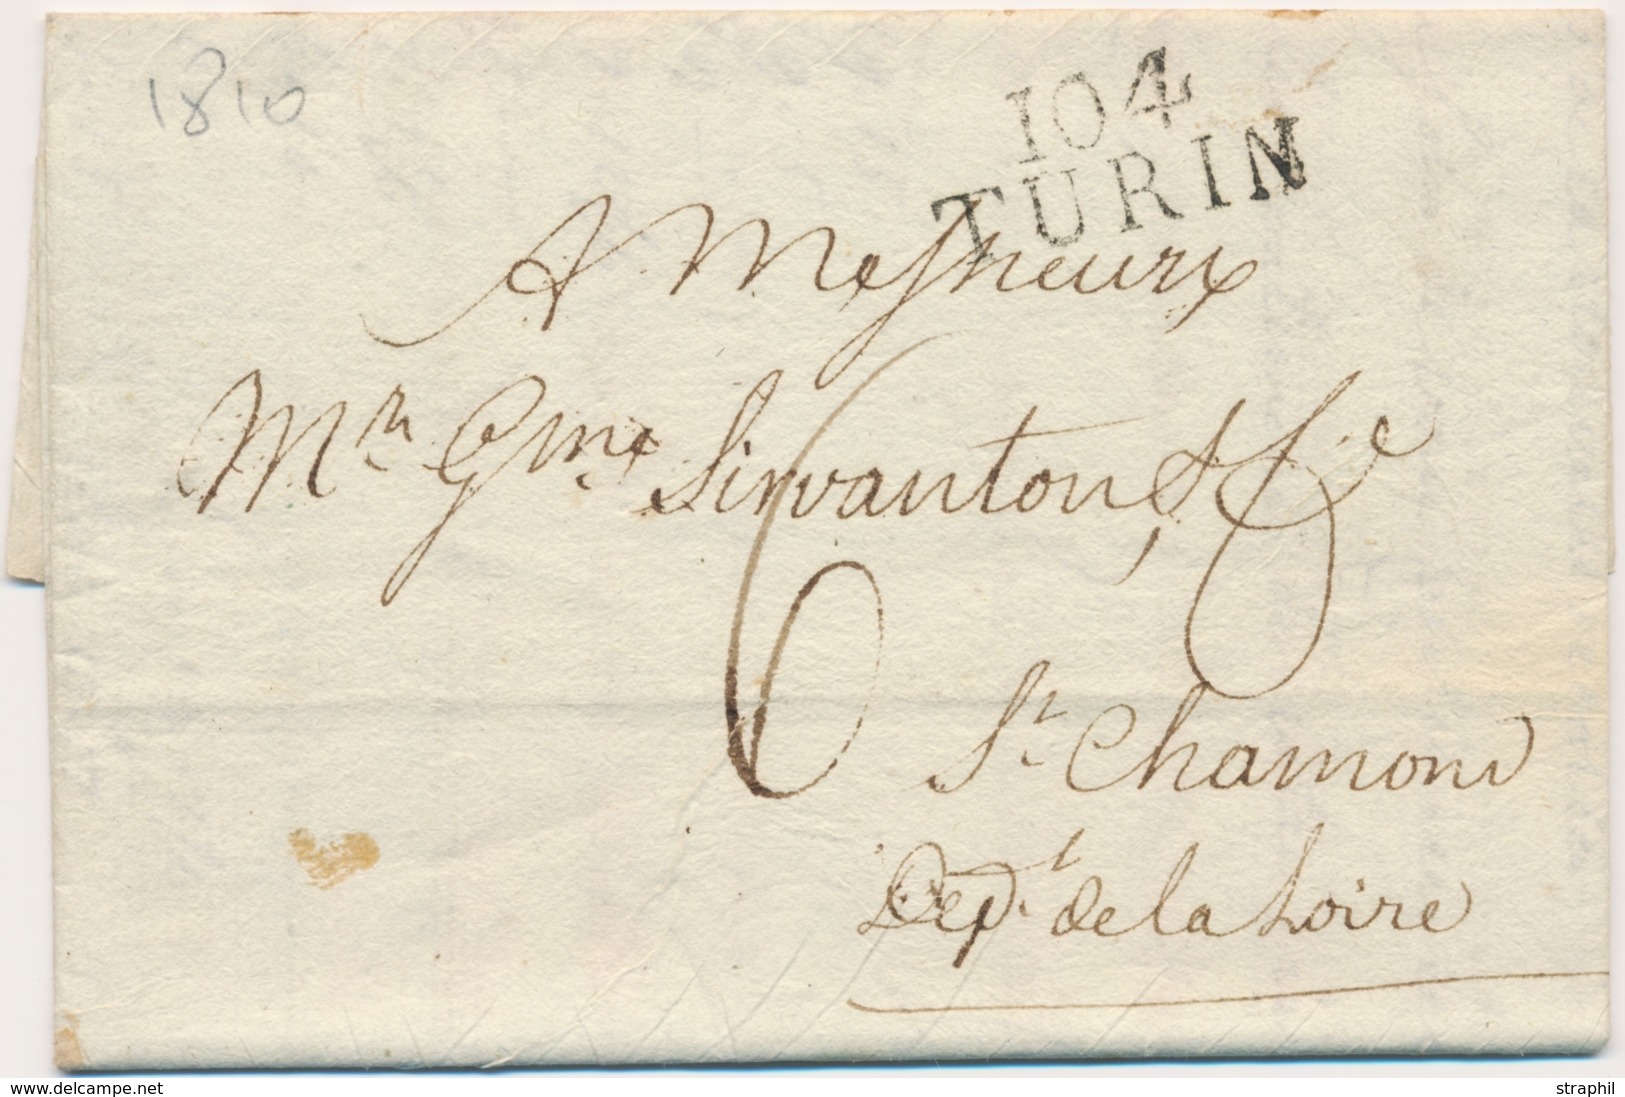 1810
104
TURIN
A Messieurs
Mrs. Gme. Sirvanton, & Cie
6
St. Chamond
Dept. de la Loire
www.delcampe.net
straphil